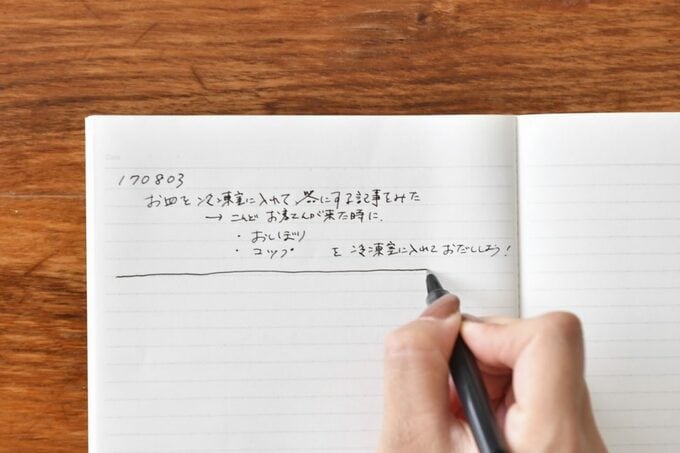 170803
お皿を冷凍室に入れて器にする記事をみた
→ こんど お客さんが来た時に、
・ おしぼり
・ コップ を 冷凍室に入れておだししよう!